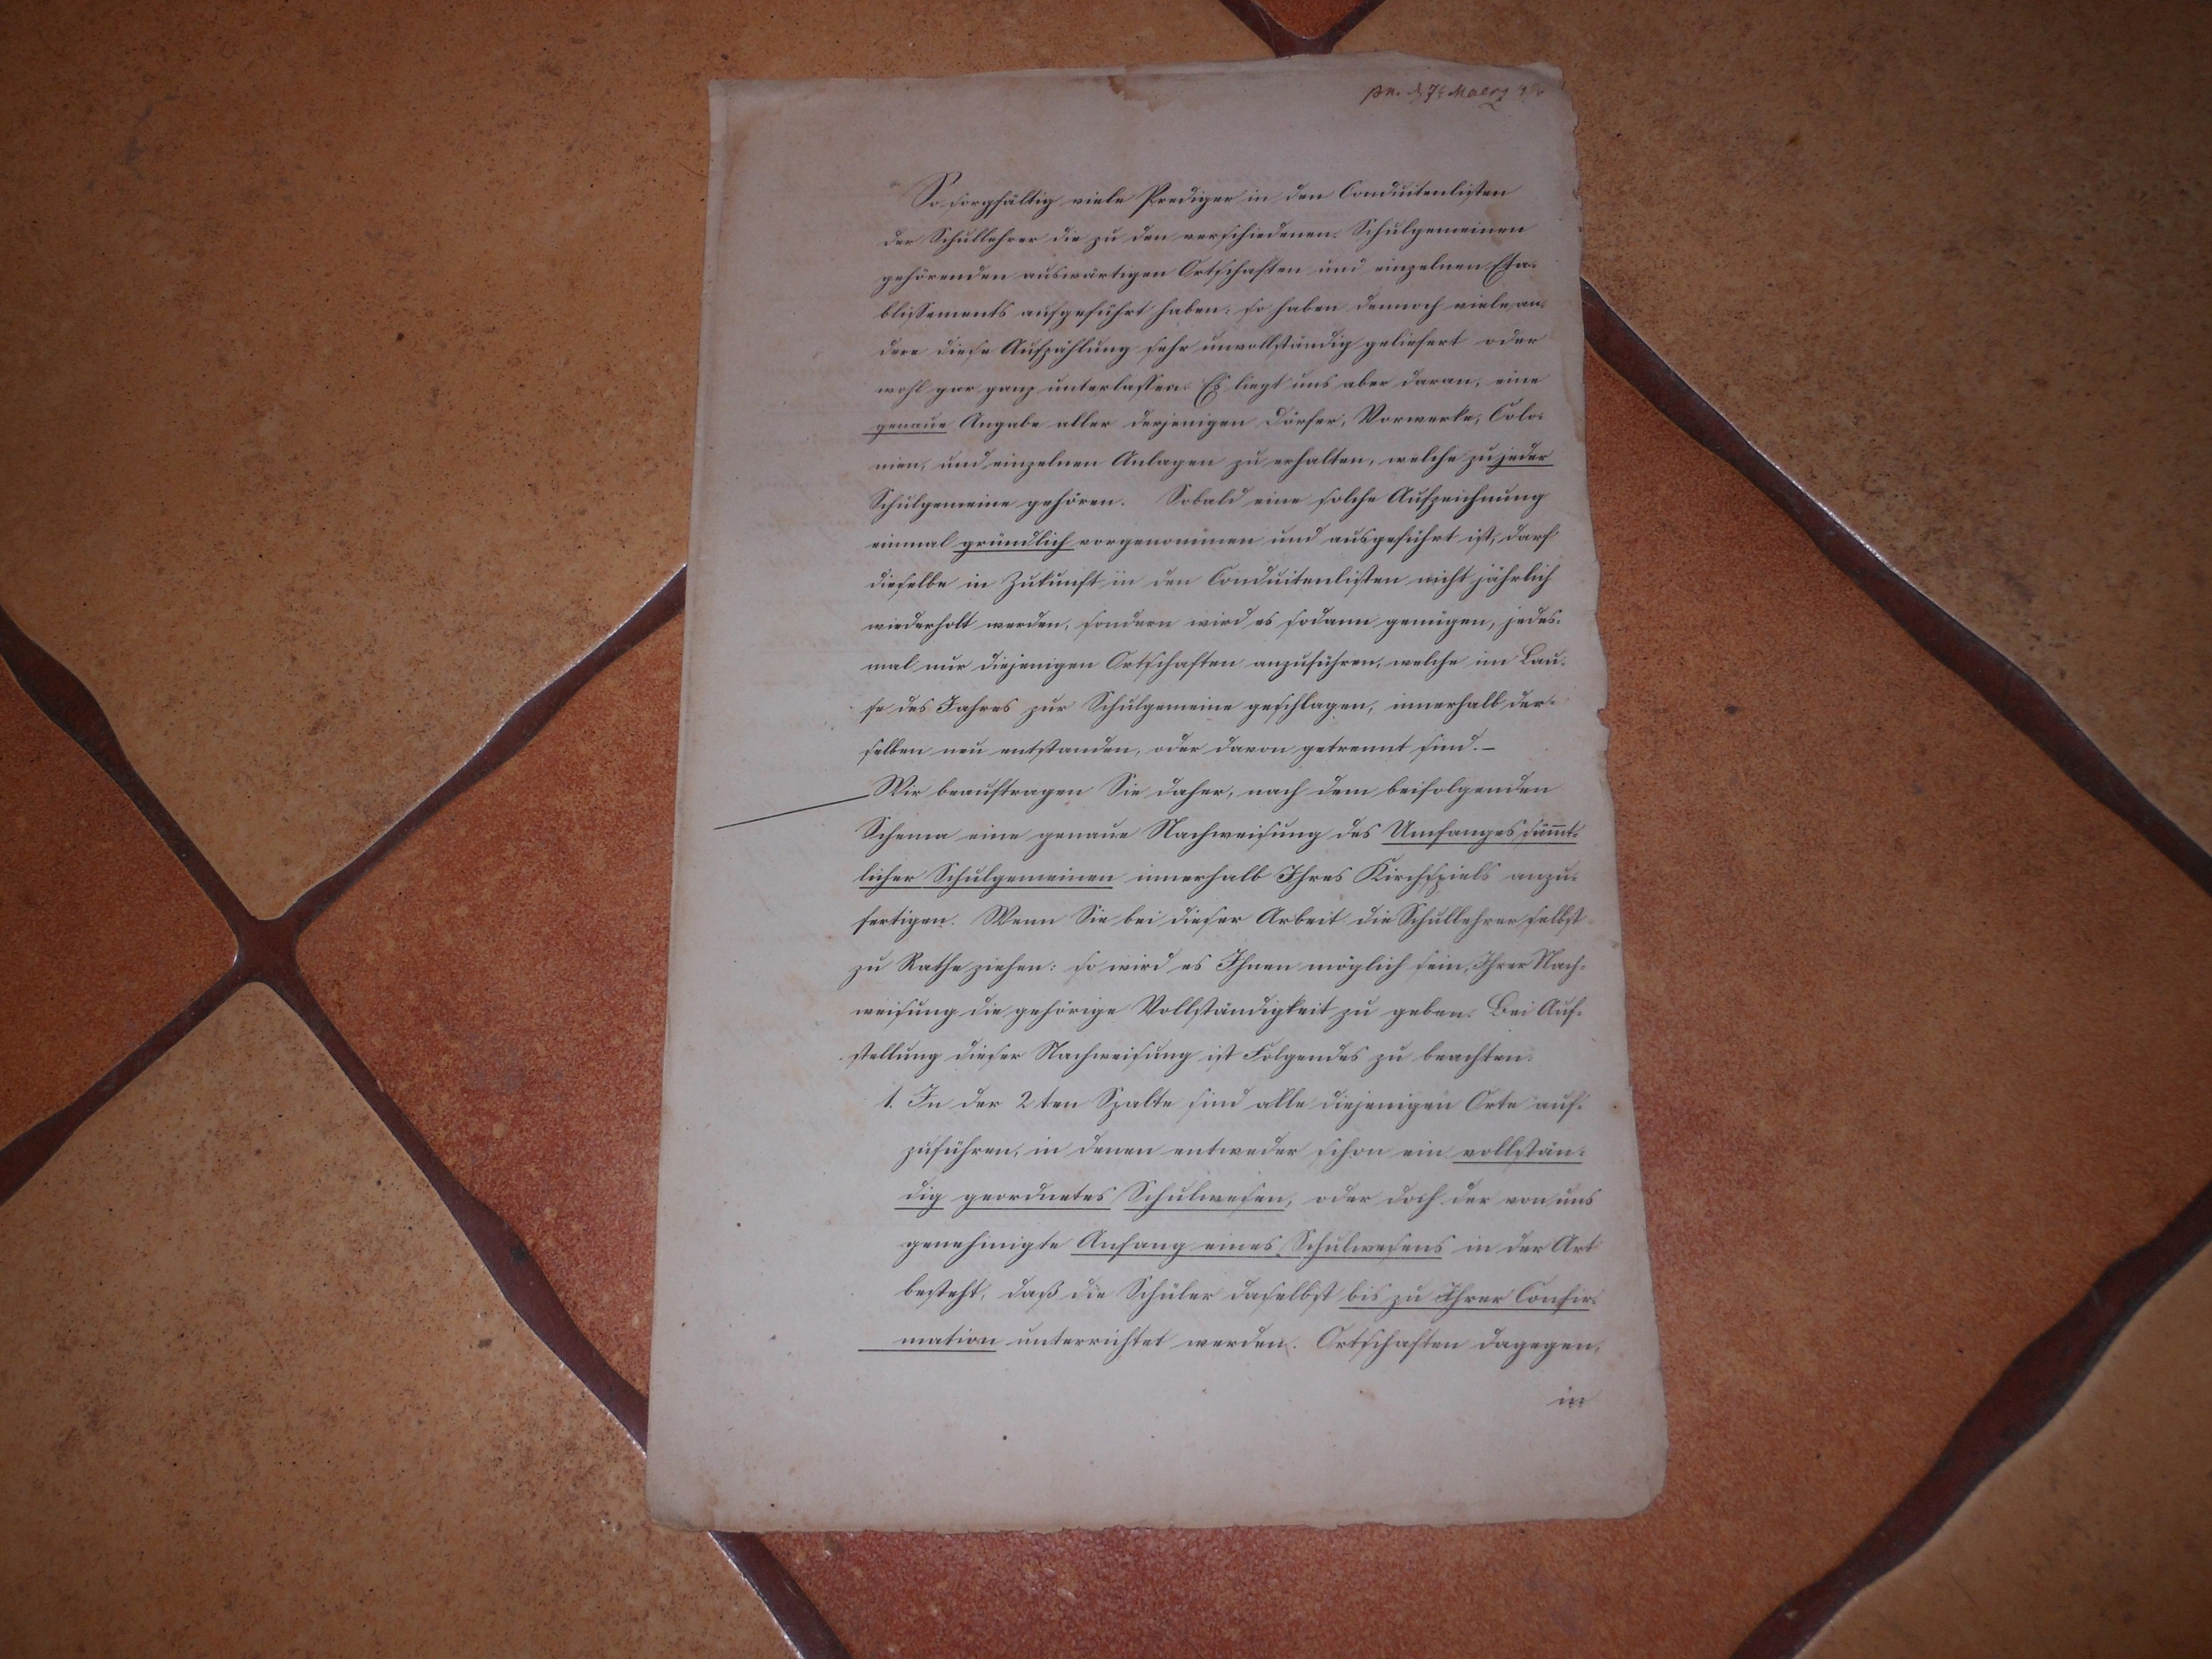 pn. d 7t Maerz
So sorgfältig viele Prediger in den Conduitenlisten
der Schullehrer die zu den verschiedenen Schulgemeinen
gehörenden auswärtigen Ortschaften und einzelnen Eta-
blissements aufgeführt haben: so haben dennoch viele an-
dere diese Aufzählung sehr unvollständig geliefert oder
wohl gar ganz unterlassen. Es liegt uns aber daran, eine
genaue Angabe aller derjenigen Dörfer, Vorwerke, Colo-
nien, und einzelnen Anlagen zu erhalten, welche zu jeder
Schulgemeine gehören. Sobald eine solche Aufzeichnung
einmal gründlich vorgenommen und ausgeführt ist, darf
dieselbe in Zukunft in den Conduitenlisten nicht jährlich
wiederholt werden, sondern wird es sodann genügen, jedes-
mal nur diejenigen Ortschaften anzuführen, welche im Lau-
fe des Jahres zur Schulgemeine geschlagen, innerhalb der-
selben neu entstanden, oder davon getrennt sind. –
Wir beauftragen Sie daher, nach dem beifolgenden
Schema eine genaue Nachweisung des Umfanges sämt-
licher Schulgemeinen innerhalb Ihres Kirchspiels anzu-
fertigen. Wenn Sie bei dieser Arbeit die Schullehrer selbst
zu Rathe ziehen: so wird es Ihnen möglich sein, Ihrer Nach-
weisung die gehörige Vollständigkeit zu geben. Bei Auf-
stellung dieser Nachweisung ist Folgendes zu beachten:
1. In der 2ten Spalte sind alle diejenigen Orte auf-
zuführen, in denen entweder schon ein vollstän-
dig geordnetes Schulwesen, oder doch der von uns
genehmigte Anfang eines Schulwesens in der Art
besteht, daß die Schüler daselbst bis zu Ihrer Confir-
mation unterrichtet werden. Ortschaften dagegen,
in